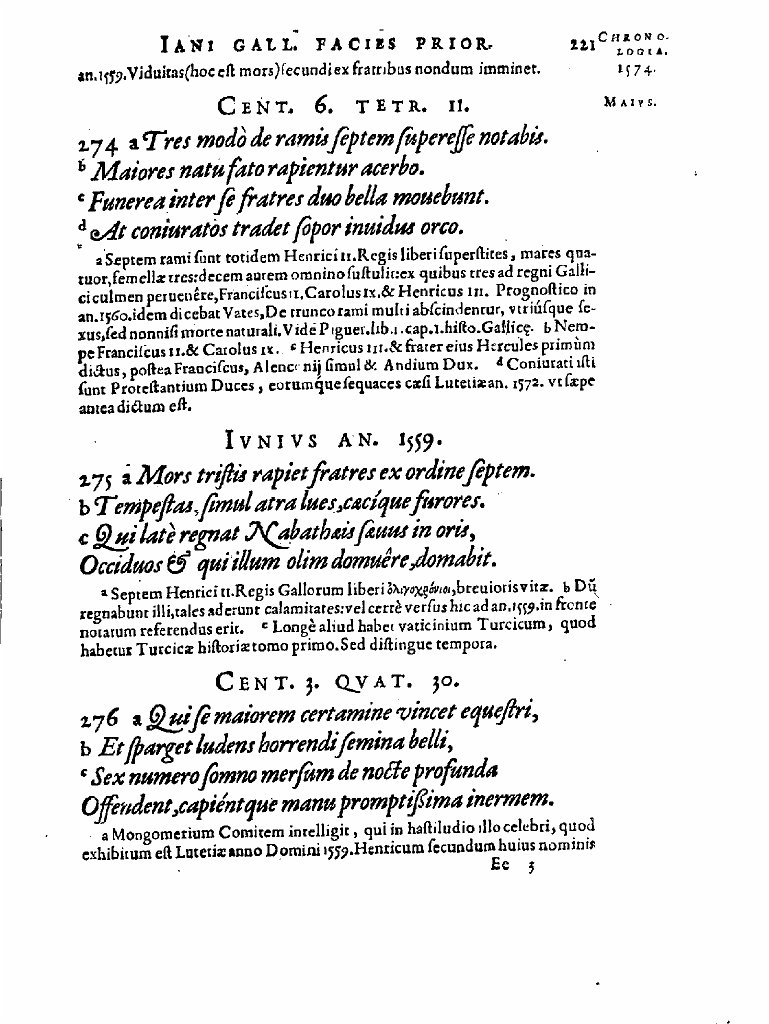 IANI GALL. FACIES PRIOR. 221 CHRONO-
LOGIA.
an.1559. Viduitas (hoc est mors) secundi ex fratribus nondum imminet. 1574.
CENT. 6. TETR. II. MAIVS.
274 a Tres modò de ramis septem superesse notabis.
b Maiores natu fato rapientur acerbo.
c Funerea inter se fratres duo bella mouebunt.
d At coniuratos tradet sopor inuidus orco.
a Septem rami sunt totidem Henrici II. Regis liberi superstites, mares qua-
tuor, femellæ tres: decem autem omnino sustulit: ex quibus tres ad regni Galli-
ci culmen peruenêre, Franciscus II, Carolus IX, & Henricus III. Prognostico in
an.1560. idem dicebat Vates, De trunco rami multi abscindentur, vtriúsque se-
xus, sed nonnisi morte naturali. Vide Piguer. lib.1. cap.1. histo. Gallicę. b Nem-
pe Franciscus II. & Carolus IX. c Henricus III. & frater eius Hercules primùm
dictus, postea Franciscus, Alenconij simul & Andium Dux. d Coniurati isti
sunt Protestantium Duces, eorumque sequaces cæsi Lutetiæ an. 1572. vt sæpe
antea dictum est.
IVNIVS AN. 1559.
275 a Mors tristis rapiet fratres ex ordine septem.
b Tempestas, simul atra lues, cæcíque furores.
c Qui latè regnat Nabathæis sæuus in oris,
Occiduos & qui illum olim domuêre, domabit.
a Septem Henrici II. Regis Gallorum liberi ὀλιγοχρόνιοι, breuioris vitæ. b Dũ
regnabunt illi, tales aderunt calamitates: vel certè versus hic ad an.1559. in fronte
notarum referendus erit. c Longè aliud habet vaticinium Turcicum, quod
habetur Turcicæ historiæ tomo primo. Sed distingue tempora.
CENT. 3. QVAT. 30.
276 a Qui se maiorem certamine vincet equestri,
b Et sparget ludens horrendi semina belli,
c Sex numero somno mersum de nocte profunda
Offendent, capiéntque manu promptißima inermem.
a Mongomerium Comitem intelligit, qui in hastiludio illo celebri, quod
exhibitum est Lutetiæ anno Domini 1559. Henricum secundum huius nominis
Ee 3